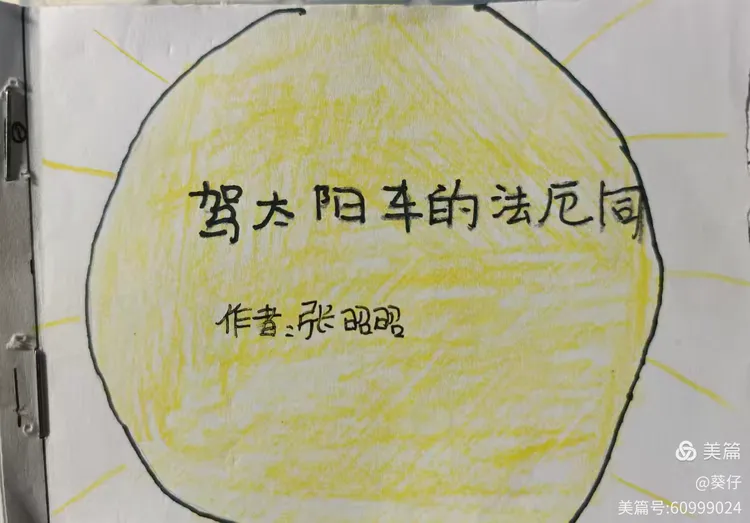 驾太阳车的法厄同
作者:张昭昭
美篇
@葵仔
美篇号:60999024